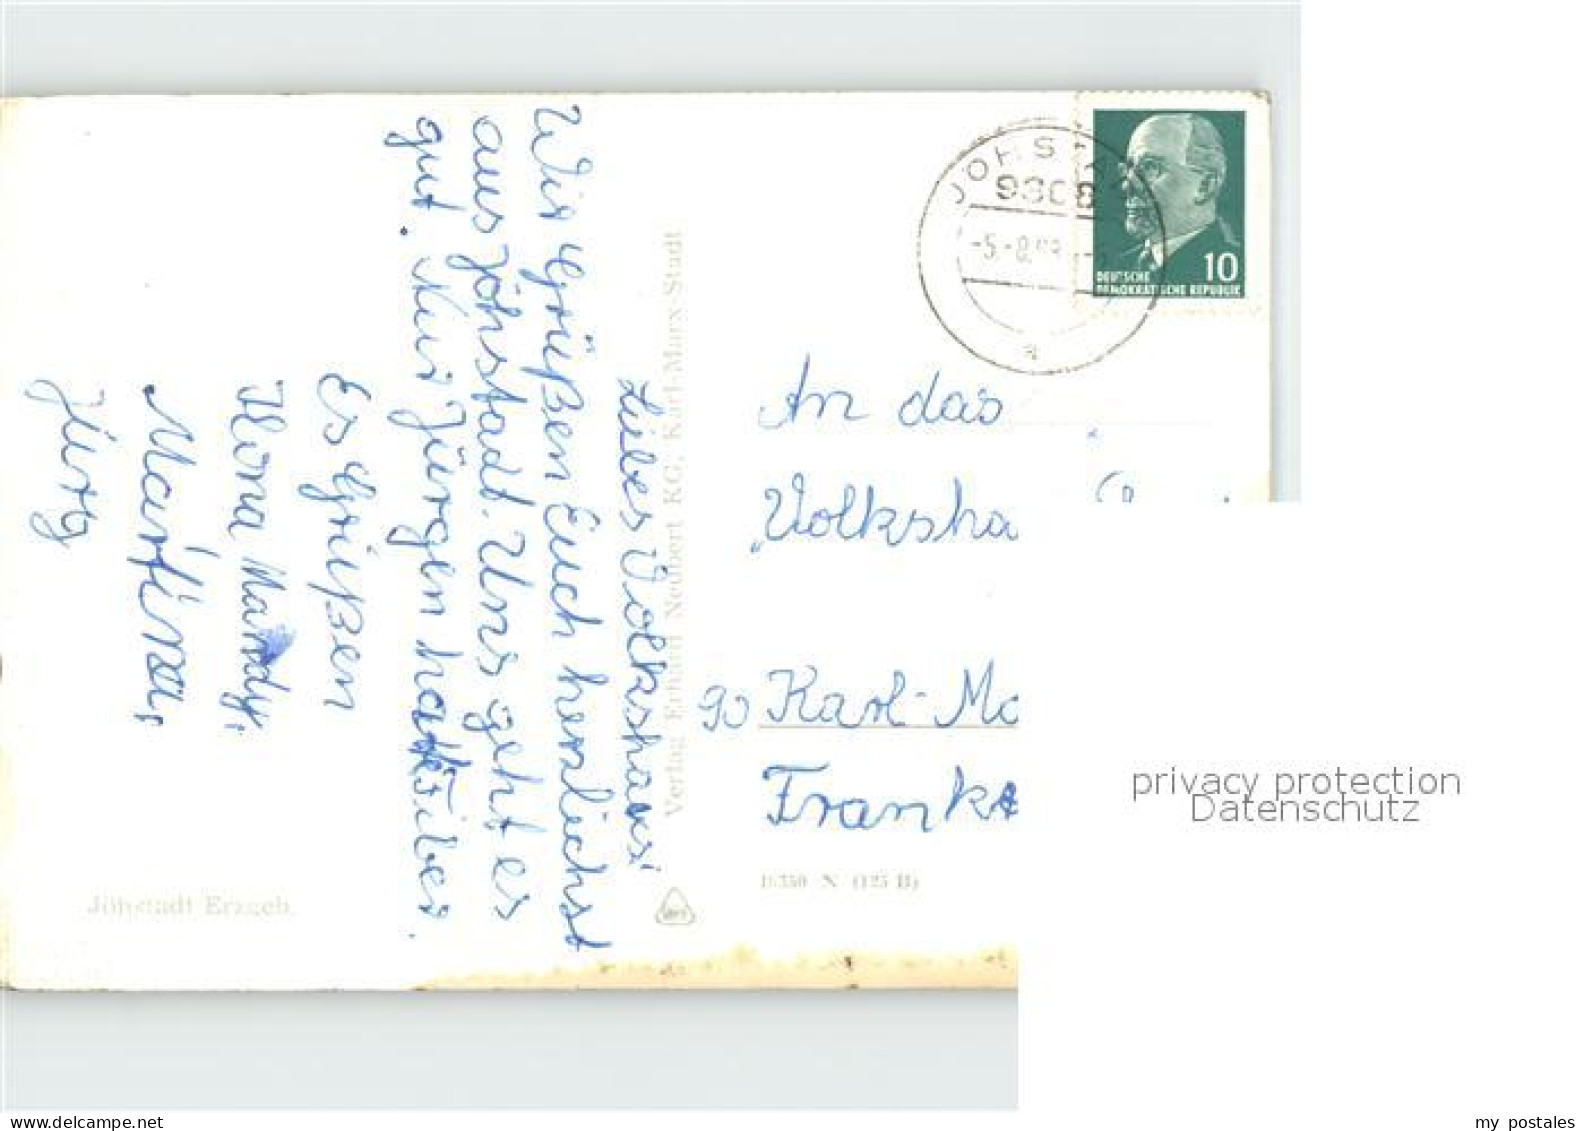 Liebes Volkshaus!
Wir Grüßen Euch herzlichst
aus Jöhstadt. Uns geht es
gut. Nur Jürgen hat
Es Grüßen
Ilona Mandy,
Martina,
Jürg
Verlag Erhard Neubert KG, Karl-Marx-Stadt
Jöhstadt Erzgeb.
JÖHSTADT
9308
-5.-8.
a
10
DEUTSCHE
DEMOKRATISCHE REPUBLIK
An das
„Volksha
90 Karl-Ma
Frank
N (125 B)
privacy protection
Datenschutz
my postales